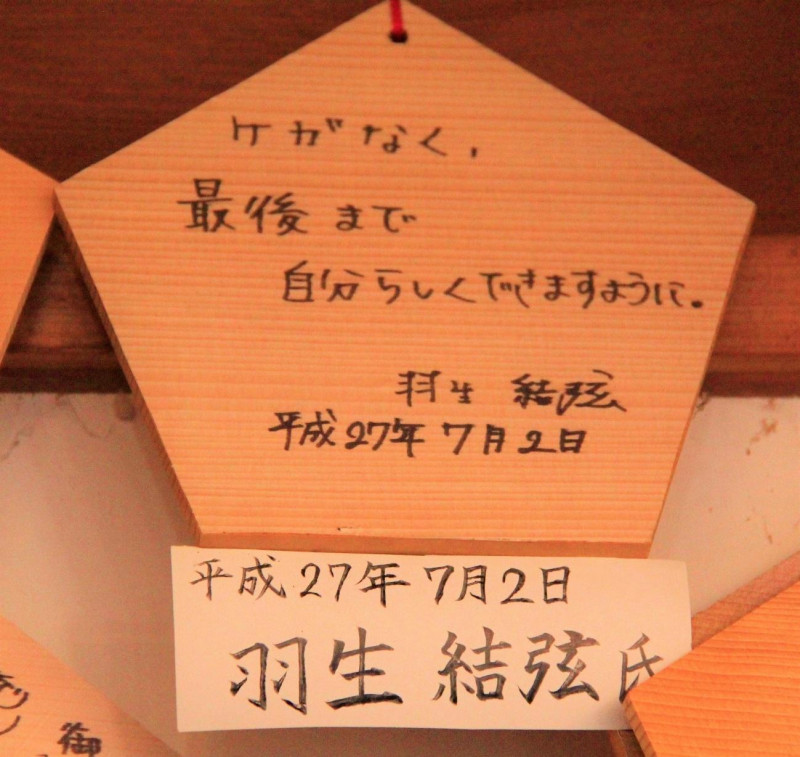 ケガなく、
最後まで
自分らしくできますように。
羽生 結弦
平成27年7月2日
平成27年7月2日
羽生 結弦氏
御